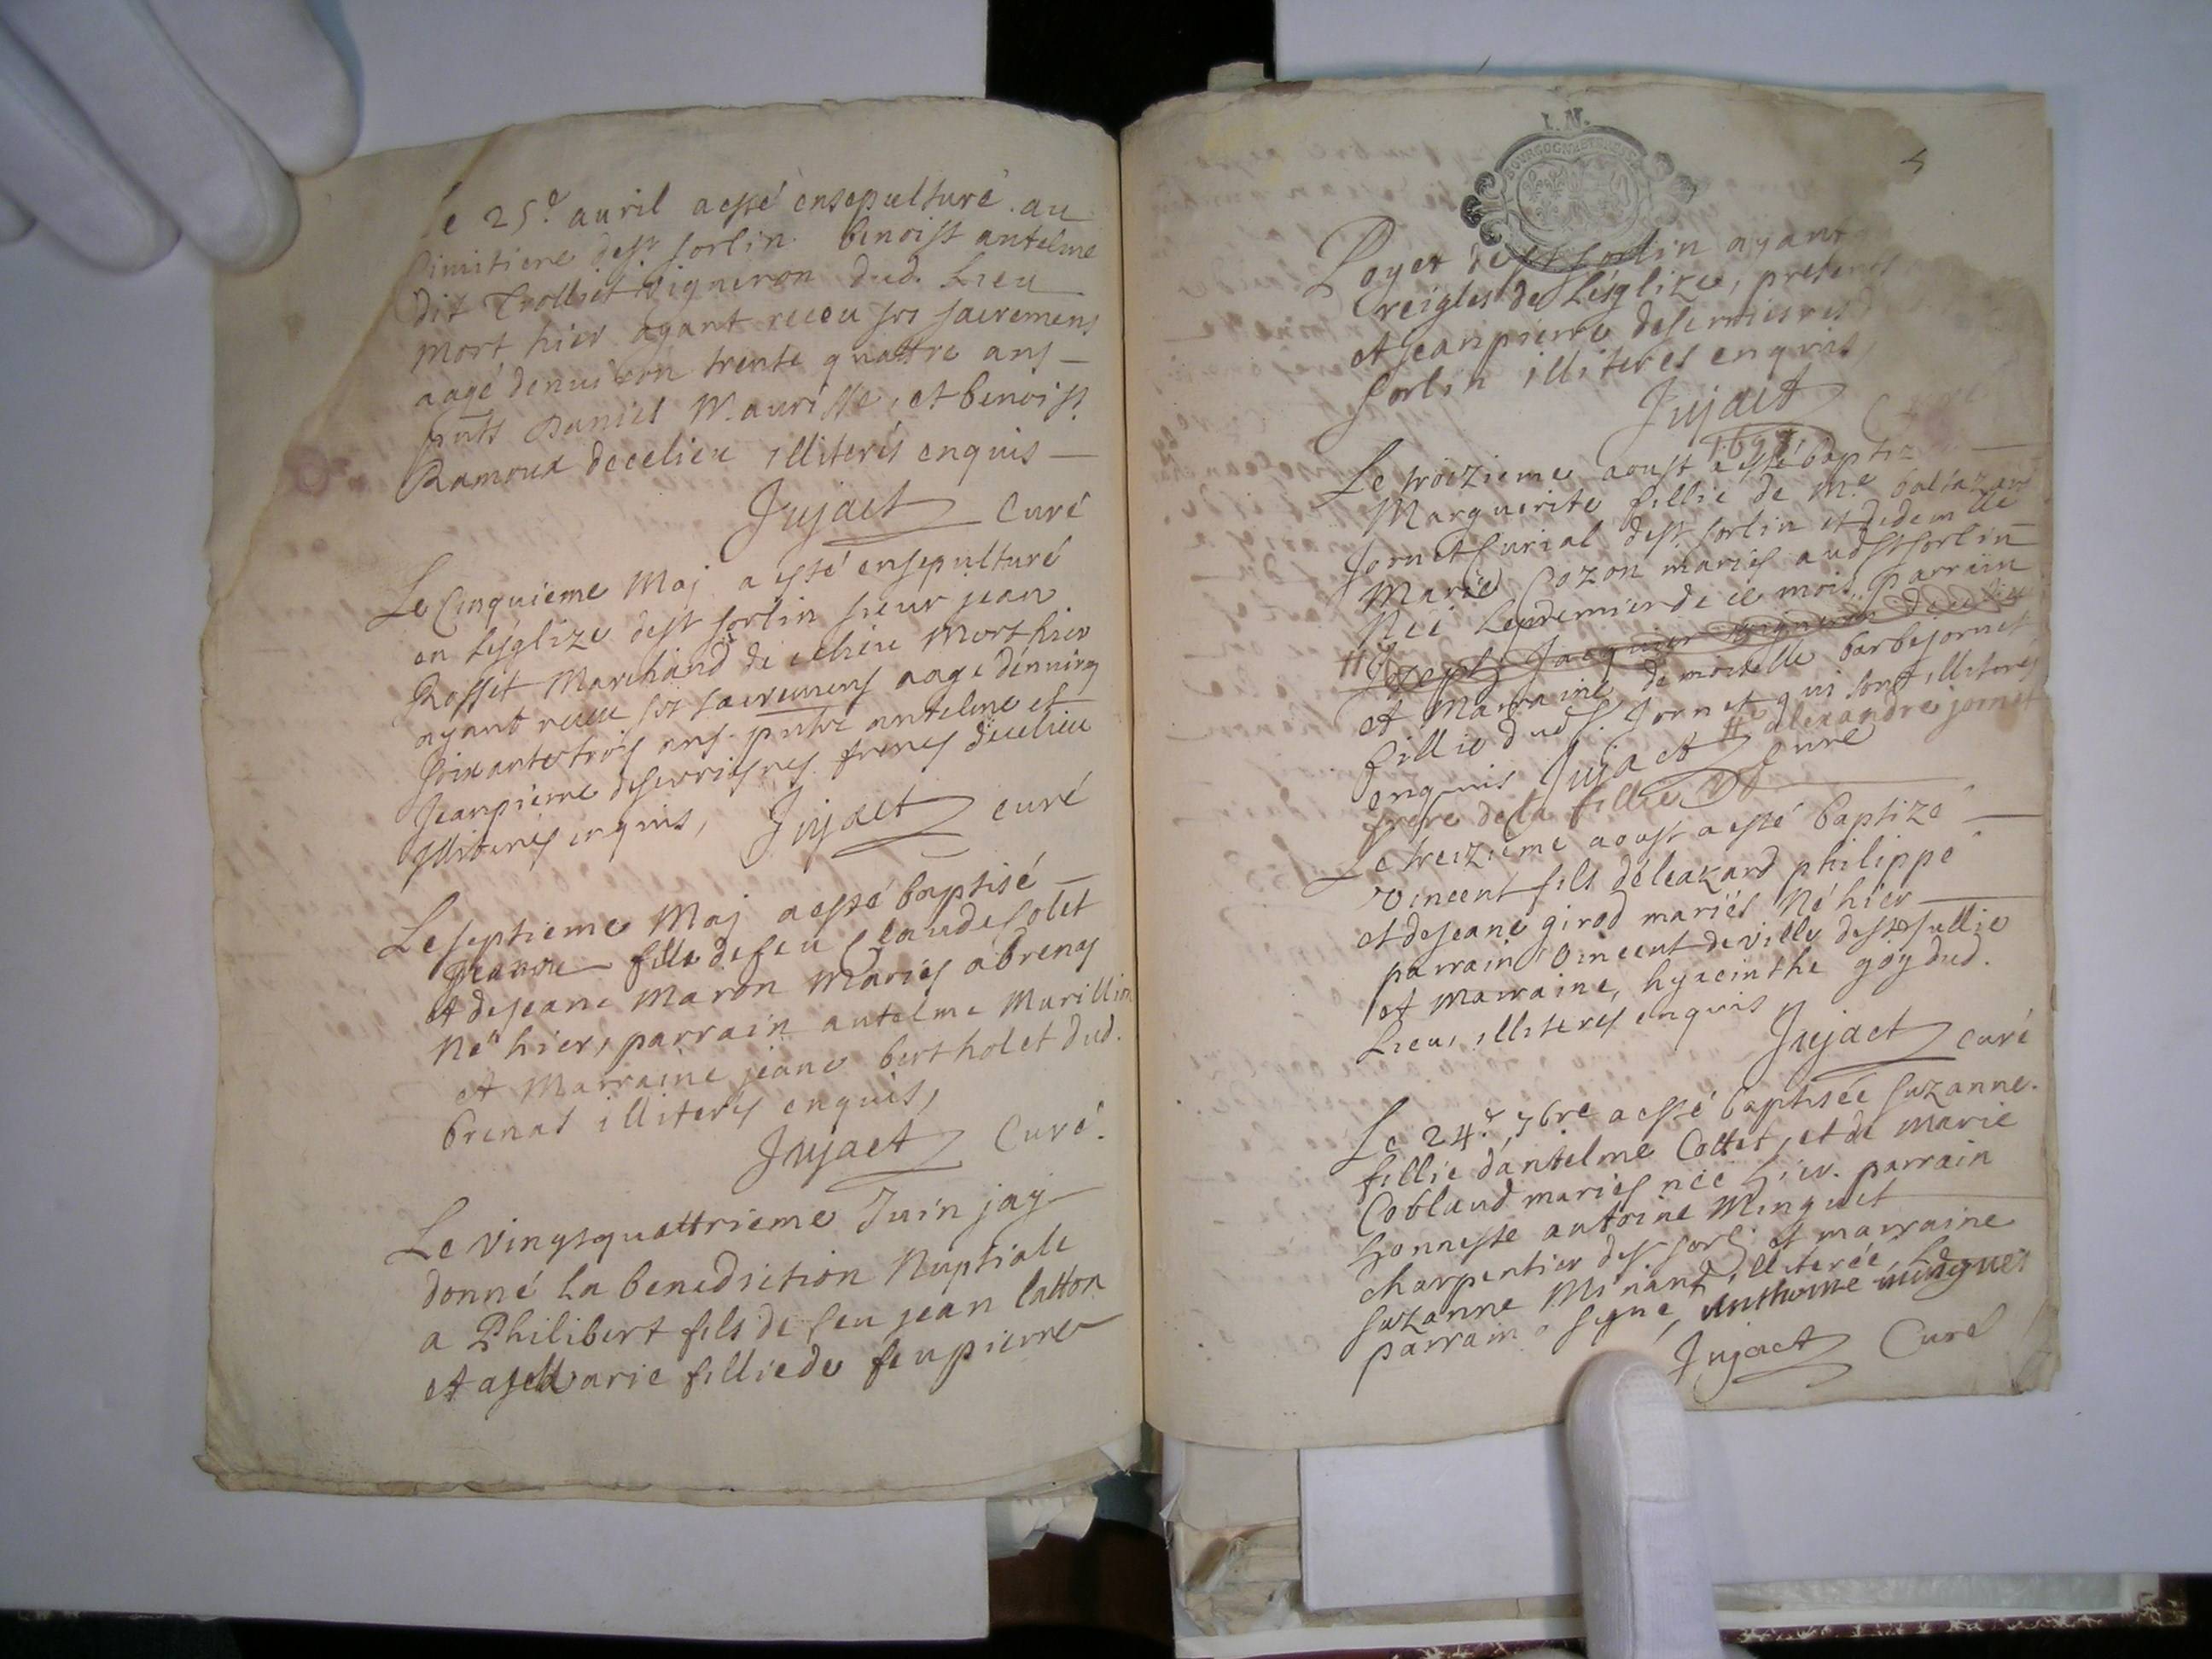 Le 25e auril a esté ensepulturé au
Cimitiere de st sorlin benoist antelme
dit Trolliet vigneron dud. Lieu
mort hier ayant receu ses sacremens
aagé denuiron trente quattre ans
pnts Daniel Maurisse, et benoist
Ramoux decelieu illiterés enquis
Jujaet Curé
Le Cinquieme Maj a esté ensepulturé
en L'esglize de st sorlin sieur jean
Rosset Marchand de celieu Mort hier
ayant receu ses sacremens aagé denuiron
soixante trois ans. pnts antelme et
Jeanpierre freres decelieu
illiterés enquis, Jujaet curé
Le septieme Maj a esté baptisé
fille de feu Claude solet
et de jeane Maron Mariés a brenas
Né hier, parrain antelme Murillin
et Marraine jeane bertholet dud.
brenas illiterés enquis,
Jujaet Curé.
Le vingtquattrieme Juin jay
donné La benediction Nuptiale
a Philibert fils de feu jean latton
et a Marie fillie de feu pierre
I. N.
BOURGOGNE ET BRESSE
5
Poyet de st sorlin ayant
reigles de L'esglize, presents
et jeanpierre
sorlin illiteres enquis,
Jujaet Curé
1697
Le troizieme aoust a esté baptiz
Marguerite fillie de Me baltazard
jornet Curial de st sorlin et de demlle
Marie Cozon mariés aud st sorlin
Née Lepremier de ce mois, Parrain
# Joseph Jacquier vigneron decelieu
et Marraine demoiselle barbe jornet
fillie dud sr. jornet qui sont illiterés
enquis Jujaet Curé # alexandre jornet
frere de la fillie
Le treizieme aoust a esté baptizé
vincent fils de leazard philippe
et de jeane girod mariés Né hier
parrain vincent deville de st sullie
et marraine, hyacinthe goy dud.
Lieu, illiterés enquis
Jujaet Curé
Le 24e 7bre a esté baptisée suzanne
fillie d'antelme Cottet, et de marie
Cobland mariés née hier. parrain
honneste antoine Minguet
charpentier de st sorl. et marraine
suzanne Minant illiterée, Le
parrain a signé, Anthoine minguet
Jujaet Curé